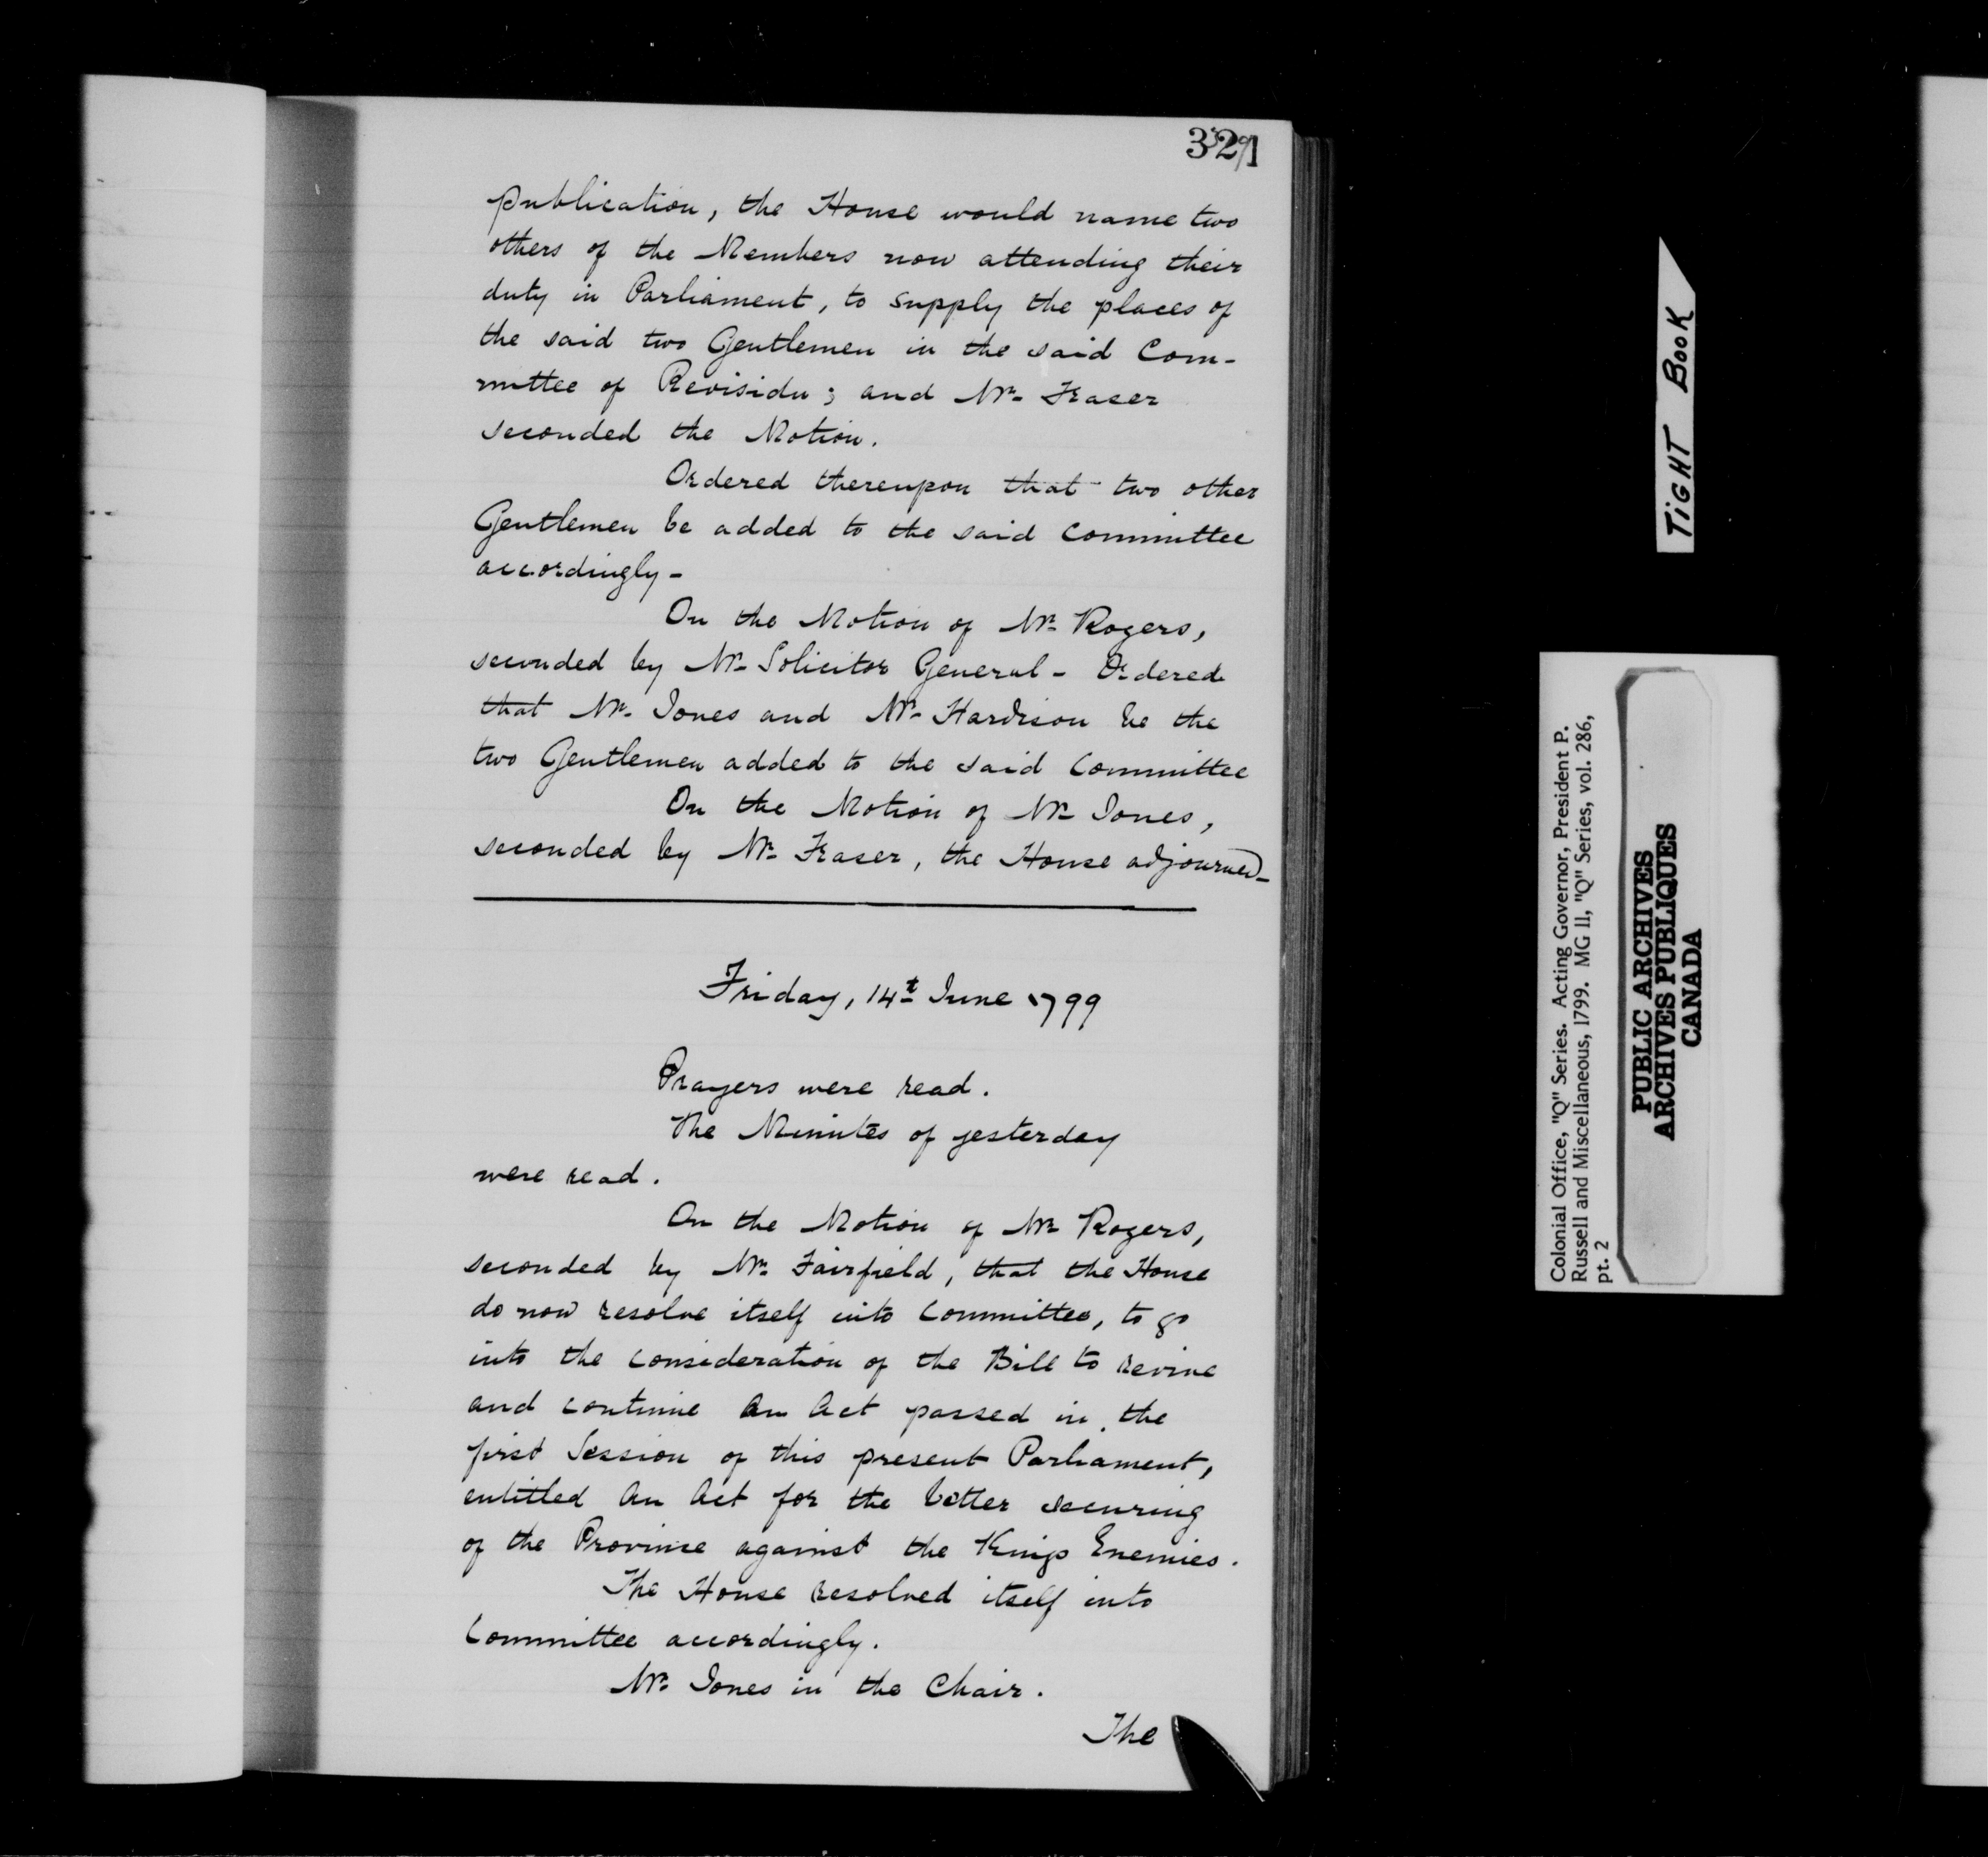 321
publication, the House would name two
others of the Members now attending their
duty in Parliament, to supply the places of
the said two Gentlemen in the said Com-
mittee of Revision; and Mr. Fraser
seconded the Motion.
Ordered thereupon that two other
Gentlemen be added to the said Committee
accordingly-
On the Motion of Mr. Rogers,
seconded by Mr. Solicitor General - Ordered
that Mr. Jones and Mr. Hardison be the
two Gentlemen added to the said Committee
On the Motion of Mr. Jones,
seconded by Mr. Fraser, the House adjourned-
Friday, 14t June 1799
Prayers were read.
The Minutes of yesterday
were read.
On the Motion of Mr. Rogers,
seconded by Mr. Fairfield, that the House
do now resolve itself into Committee, to go
into the consideration of the Bill to revive
and continue an Act passed in the
first Session of this present Parliament,
entitled An Act for the better securing
of the Province against the Kings Enemies.
The House resolved itself into
Committee accordingly.
Mr. Jones in the Chair.
The
TIGHT BOOK
Colonial Office, "Q" Series. Acting Governor, President P.
Russell and Miscellaneous, 1799. MG 11, "Q" Series, vol. 286,
pt. 2
PUBLIC ARCHIVES
ARCHIVES PUBLIQUES
CANADA